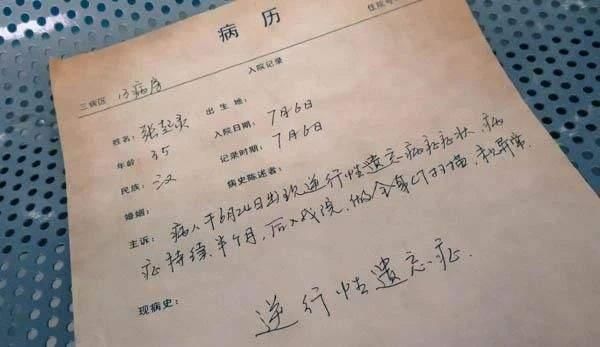 病历
住院号
入院记录
三病区 病房
姓名: 张起灵 出生地:
年龄 35 入院日期: 7月6日
民族: 汉 记录时期: 7月6日
婚姻: 病史陈述者:
主诉: 病人于6月24日出现逆行性遗忘病症症状,病
症持续半个月,后入我院,做全身CT扫描,未异常.
现病史:
逆行性遗忘症.